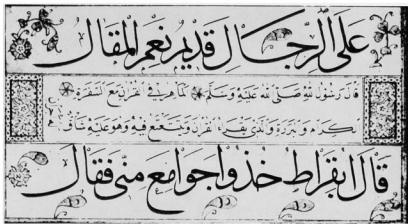 على الرجال قديم نعم المقال
قال رسول الله صلى الله عليه وسلم الماهر في القرآن مع السفرة
الكرام البررة والذي يقراء القرآن ويتتعتع فيه وهو عليه شاق
قال ابقراط خذوا جوامع منى فقال